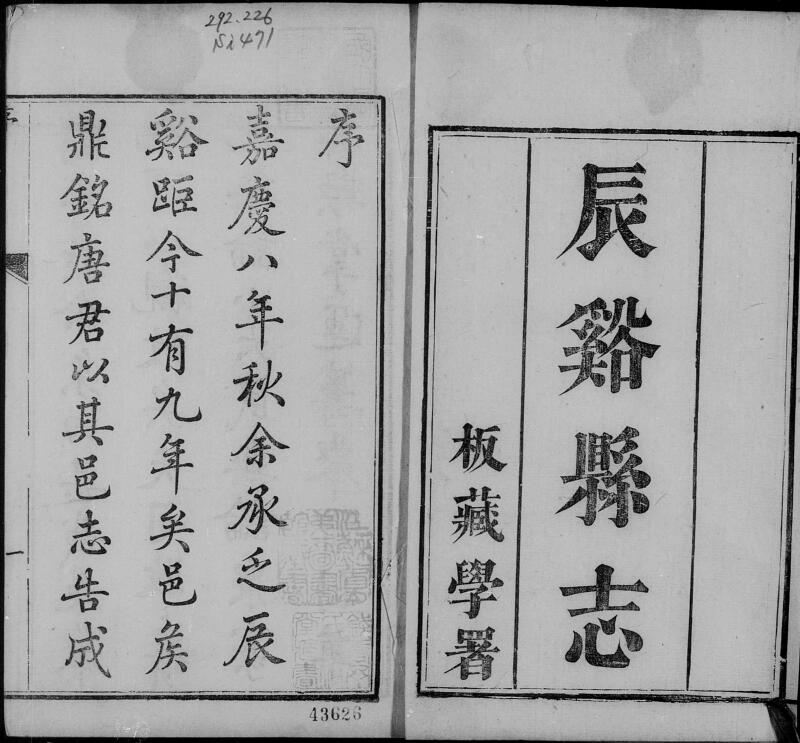 292.226
Ni471
辰谿縣志
板藏學署
序
嘉慶八年秋余承乏辰
谿距今十有九年矣邑矦
鼎銘唐君以其邑志告成
一
43626